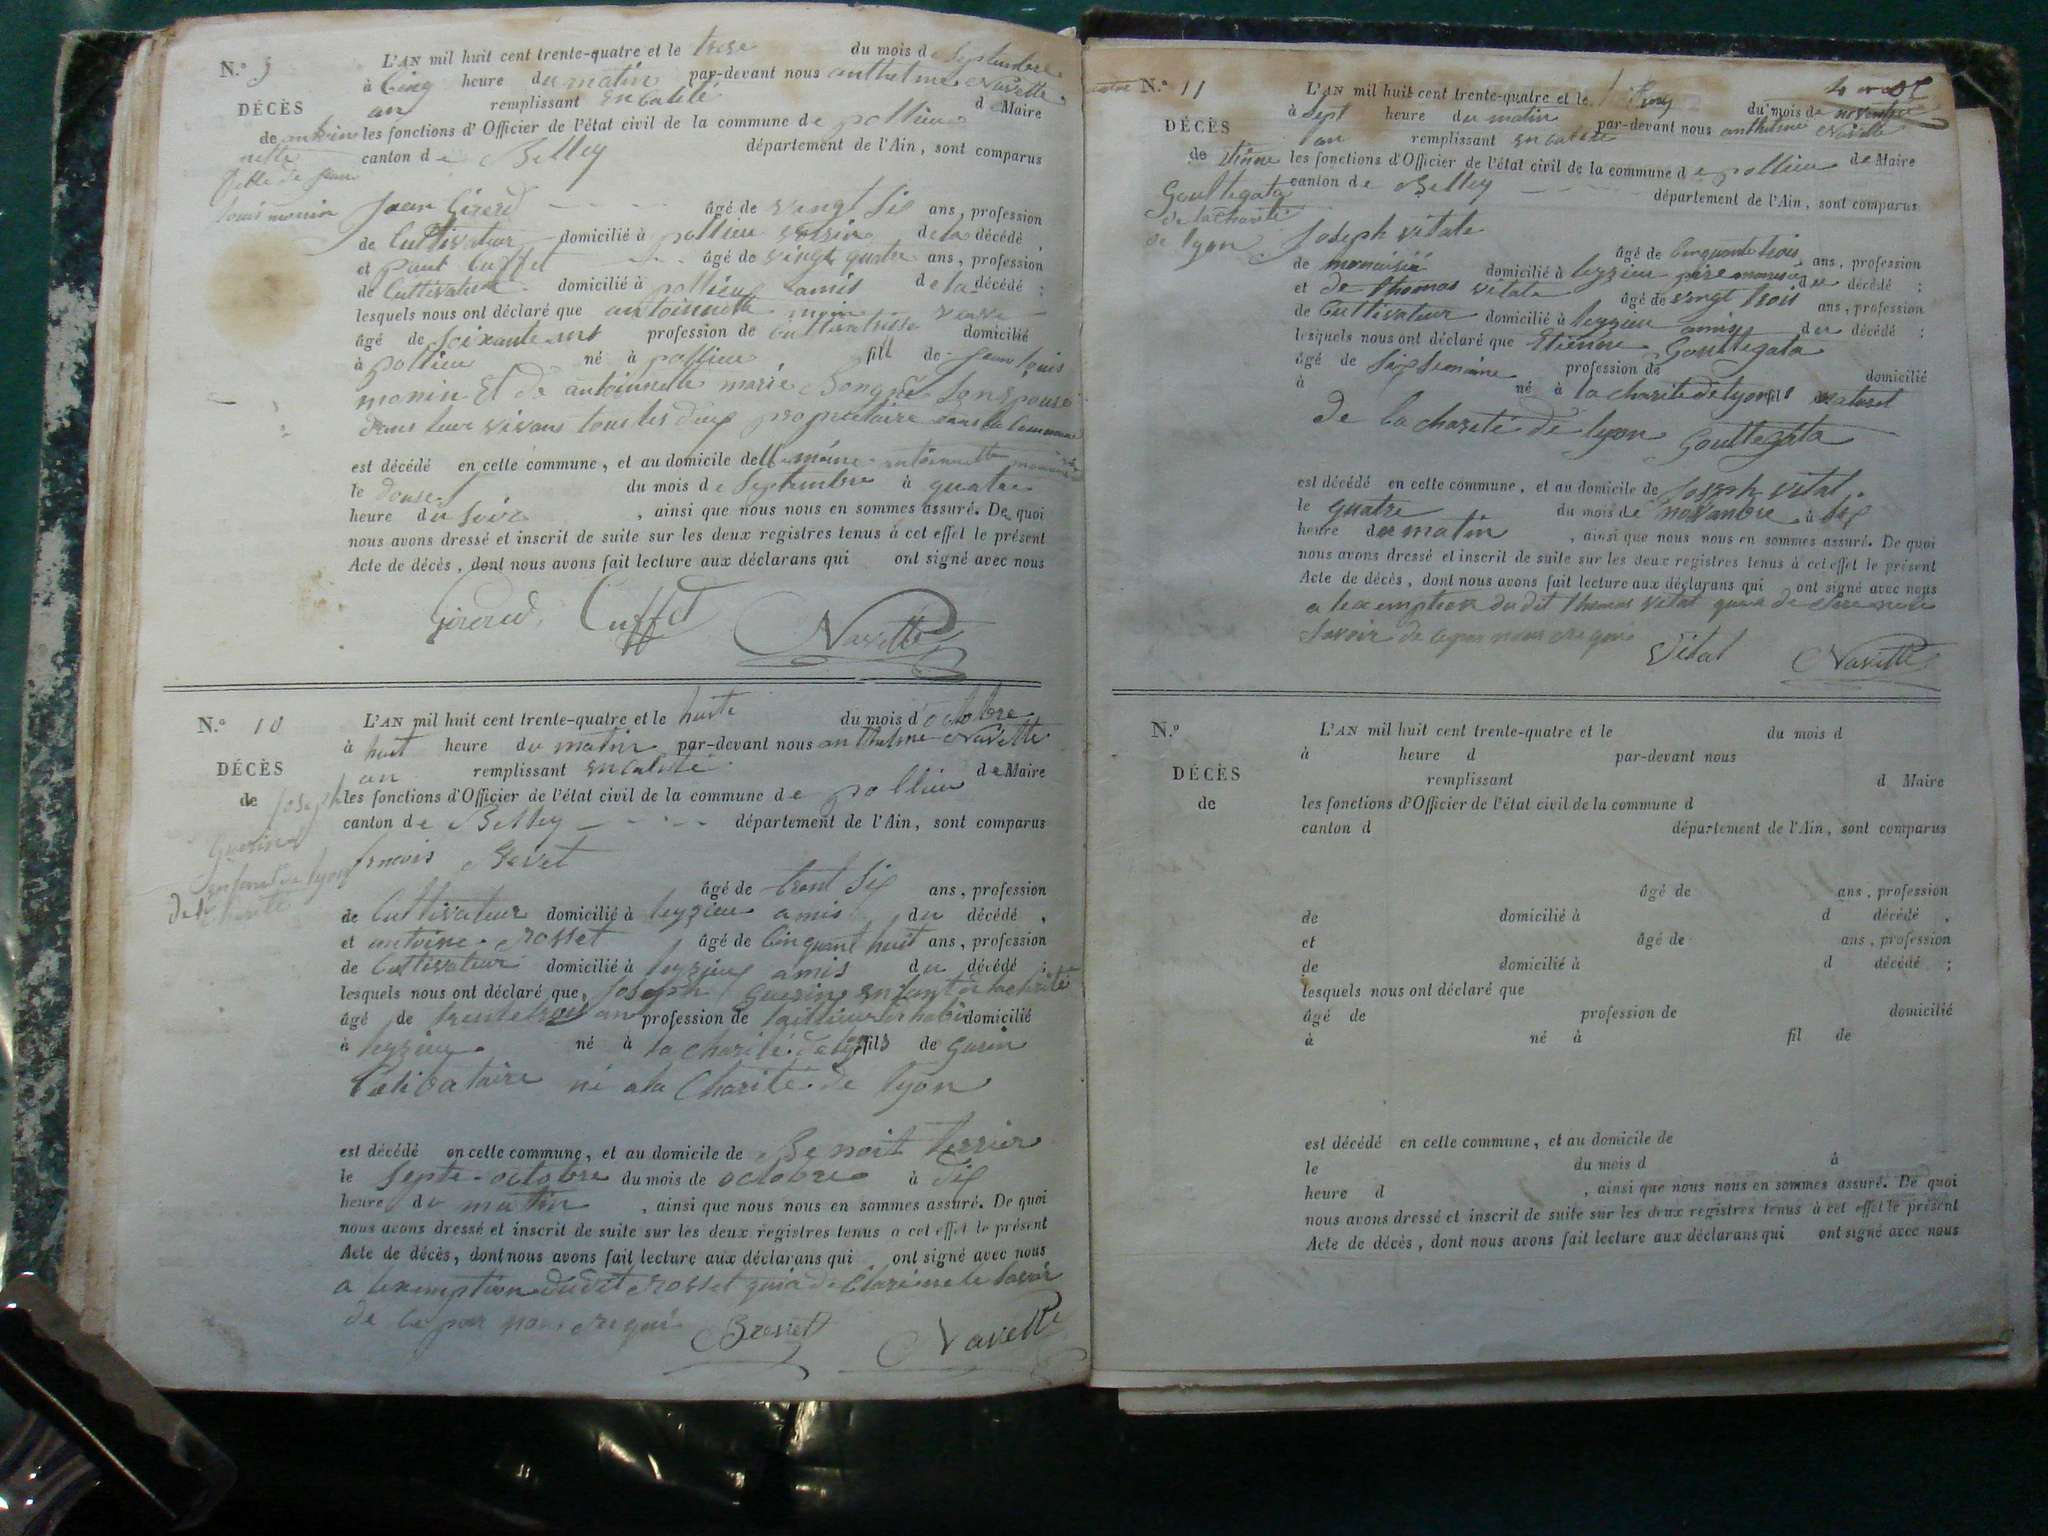 N.° 9
DÉCÈS
de antoinette
fille de jean
louis monin
L'AN mil huit cent trente-quatre et le trese du mois de Septembre
à Cinq heure du matin par-devant nous anthelme Navette
an remplissant en calité de Maire
les fonctions d'Officier de l'état civil de la commune de pollieu
canton de Belley département de l'Ain, sont comparus
Jean Girerd âgé de vingt six ans, profession
de Cultivateur domicilié à pollieu voisin de la décédé,
et paul Cuffet âgé de vingt quatre ans, profession
de Cultivateur domicilié à pollieu amis de la décédé;
lesquels nous ont déclaré que antoinette monin
âgé de soixante ans profession de cultivatrisse domicilié
à pollieu né à pollieu fill de jean louis
monin Et de antoinnette marie son epouse
dans leur vivans tous les deux propriettaire dans la Commune
est décédé en cette commune, et au domicile de antoinette
le douse du mois de Septembre à quatre
heure du soire, ainsi que nous nous en sommes assuré. De quoi
nous avons dressé et inscrit de suite sur les deux registres tenus à cet effet le présent
Acte de décès, dont nous avons fait lecture aux déclarans qui ont signé avec nous
Girerd Cuffet Navette
N.° 10
DÉCÈS
de Joseph
Guerin
enfant de lyon
de la
Charité
L'AN mil huit cent trente-quatre et le huite du mois d'octobre
à huit heure du matin par-devant nous anthelme Navette
an remplissant en calité de Maire
les fonctions d'Officier de l'état civil de la commune de pollieu
canton de Belley département de l'Ain, sont comparus
âgé de trent six ans, profession
de Cultivateur domicilié à leyzieu amis du décédé,
et antoine rosset âgé de Cinquant huit ans, profession
de Cultivateur domicilié à leyzieu amis du décédé;
lesquels nous ont déclaré que Joseph Guerin enfant de la charité
âgé de trente trois ans profession de tailleur d'habi domicilié
à leyzieu né à la charité de lyon fils de Garin
Celibataire né a la Charité de lyon
est décédé en cette commune, et au domicile de Benoit
le septe octobre du mois de octobre à dix
heure du matin, ainsi que nous nous en sommes assuré. De quoi
nous avons dressé et inscrit de suite sur les deux registres tenus à cet effet le présent
Acte de décès, dont nous avons fait lecture aux déclarans qui ont signé avec nous
a lexemption dudit rosset qui a declaré ne le savoir
de ce par nous requi
Navette
N.° 11
DÉCÈS
de Etienne
Gouttegata
de la charité
de lyon
L'AN mil huit cent trente-quatre et le du mois de novembre
à sept heure du matin par-devant nous anthelme Navette
an remplissant en calité de Maire
les fonctions d'Officier de l'état civil de la commune de pollieu
canton de Belley département de l'Ain, sont comparus
Joseph vitale âgé de Cinquante trois ans, profession
de domicilié à leyzieu pere du décédé;
et de thomas vitale âgé de vingt trois ans, profession
de Cultivateur domicilié à leyzieu amis du décédé;
lesquels nous ont déclaré que Etienne Gouttegata
âgé de six semaine profession de domicilié
à né à la charité de lyon fils naturel
de la charité de lyon Gouttegata
est décédé en cette commune, et au domicile de Joseph vital
le quatre du mois de novanbre à six
heure du matin, ainsi que nous nous en sommes assuré. De quoi
nous avons dressé et inscrit de suite sur les deux registres tenus à cet effet le présent
Acte de décès, dont nous avons fait lecture aux déclarans qui ont signé avec nous
a lexemption du dit thomas vital qui a declaré ne le
savoir de ce par nous requi
Vital Navette
N.°
DÉCÈS
de
L'AN mil huit cent trente-quatre et le du mois d
à heure d par-devant nous
remplissant d Maire
les fonctions d'Officier de l'état civil de la commune d
canton d département de l'Ain, sont comparus
âgé de ans, profession
de domicilié à d décédé,
et âgé de ans, profession
de domicilié à d décédé;
lesquels nous ont déclaré que
âgé de profession de domicilié
à né à fil de
est décédé en cette commune, et au domicile de
le du mois d à
heure d, ainsi que nous nous en sommes assuré. De quoi
nous avons dressé et inscrit de suite sur les deux registres tenus à cet effet le présent
Acte de décès, dont nous avons fait lecture aux déclarans qui ont signé avec nous